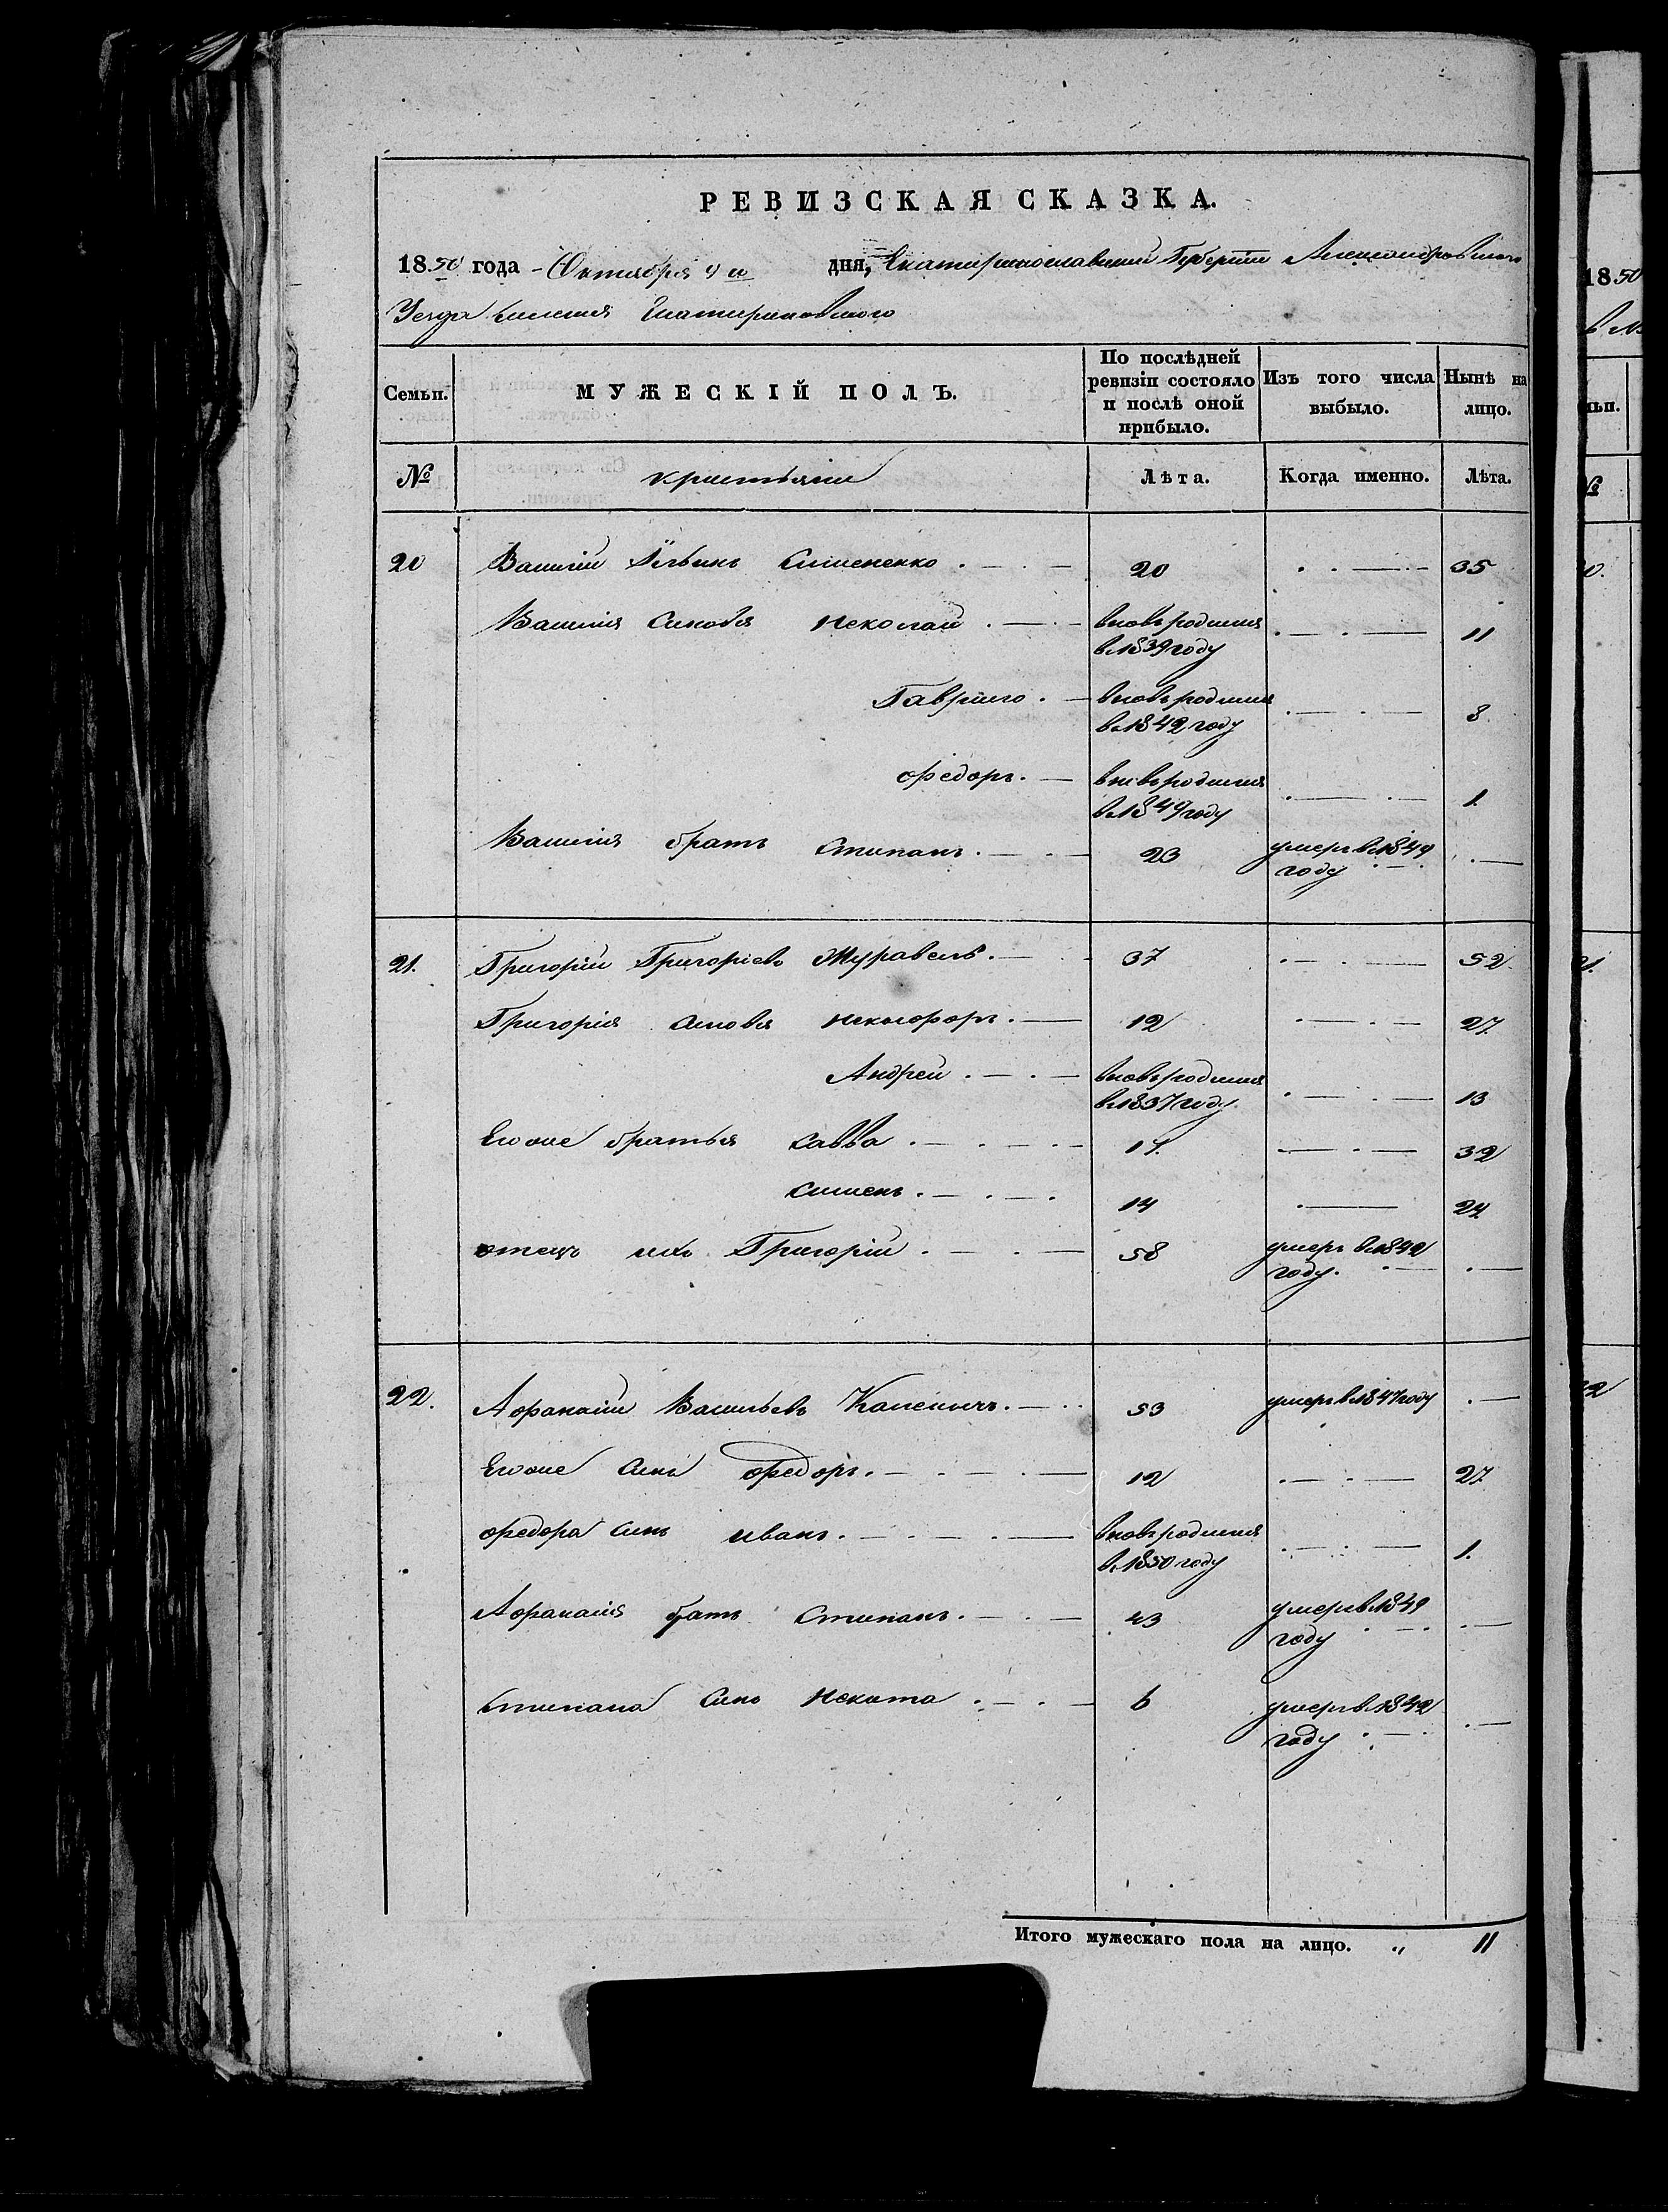 РЕВИЗСКАЯ СКАЗКА.
1850 года Октября 4 дня, Екатеринославской Губернии Александровского
Уезда Екатериновского
Семьи. МУЖЕСКІЙ ПОЛЪ. По послѣдней ревизіи состояло и послѣ оной прибыло. Изъ того числа выбыло. Нынѣ на лицо.
№ крестьяне Лѣта. Когда именно. Лѣта.
20 Василий Ильинъ Симененко 20 35
Василия синовя Неколай вновьродился в 1839 году 11
Гаврило вновьродился в 1842 году 8
Федоръ вновьродился в 1849 году 1
Василия братъ Стипанъ 23 умеръ в 1849 году
21. Григорій Григоріевъ Журавель 37 52
Григорія синовя Некифоръ 12 27
Андрей вновьродился в 1837 году 13
Егоже братья Савва 17 32
Симень 14 24
отецъ ихъ Григорій 58 умеръ в 1842 году
22. Афанасий Васильевъ 53 умеръ в 1847 году
Егоже синъ Федоръ 12 27
Федора синъ Иванъ вновьродился в 1850 году 1.
Афанасия братъ Стипанъ 43 умеръ в 1849 году
Стипана синъ Некита 6 умеръ в 1842 году
Итого мужескаго пола на лицо. „ 11
1850